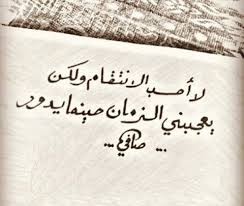 لا أحب الانتقام ولكن
يعجبني الزمان حينما يدور
... صافي ...